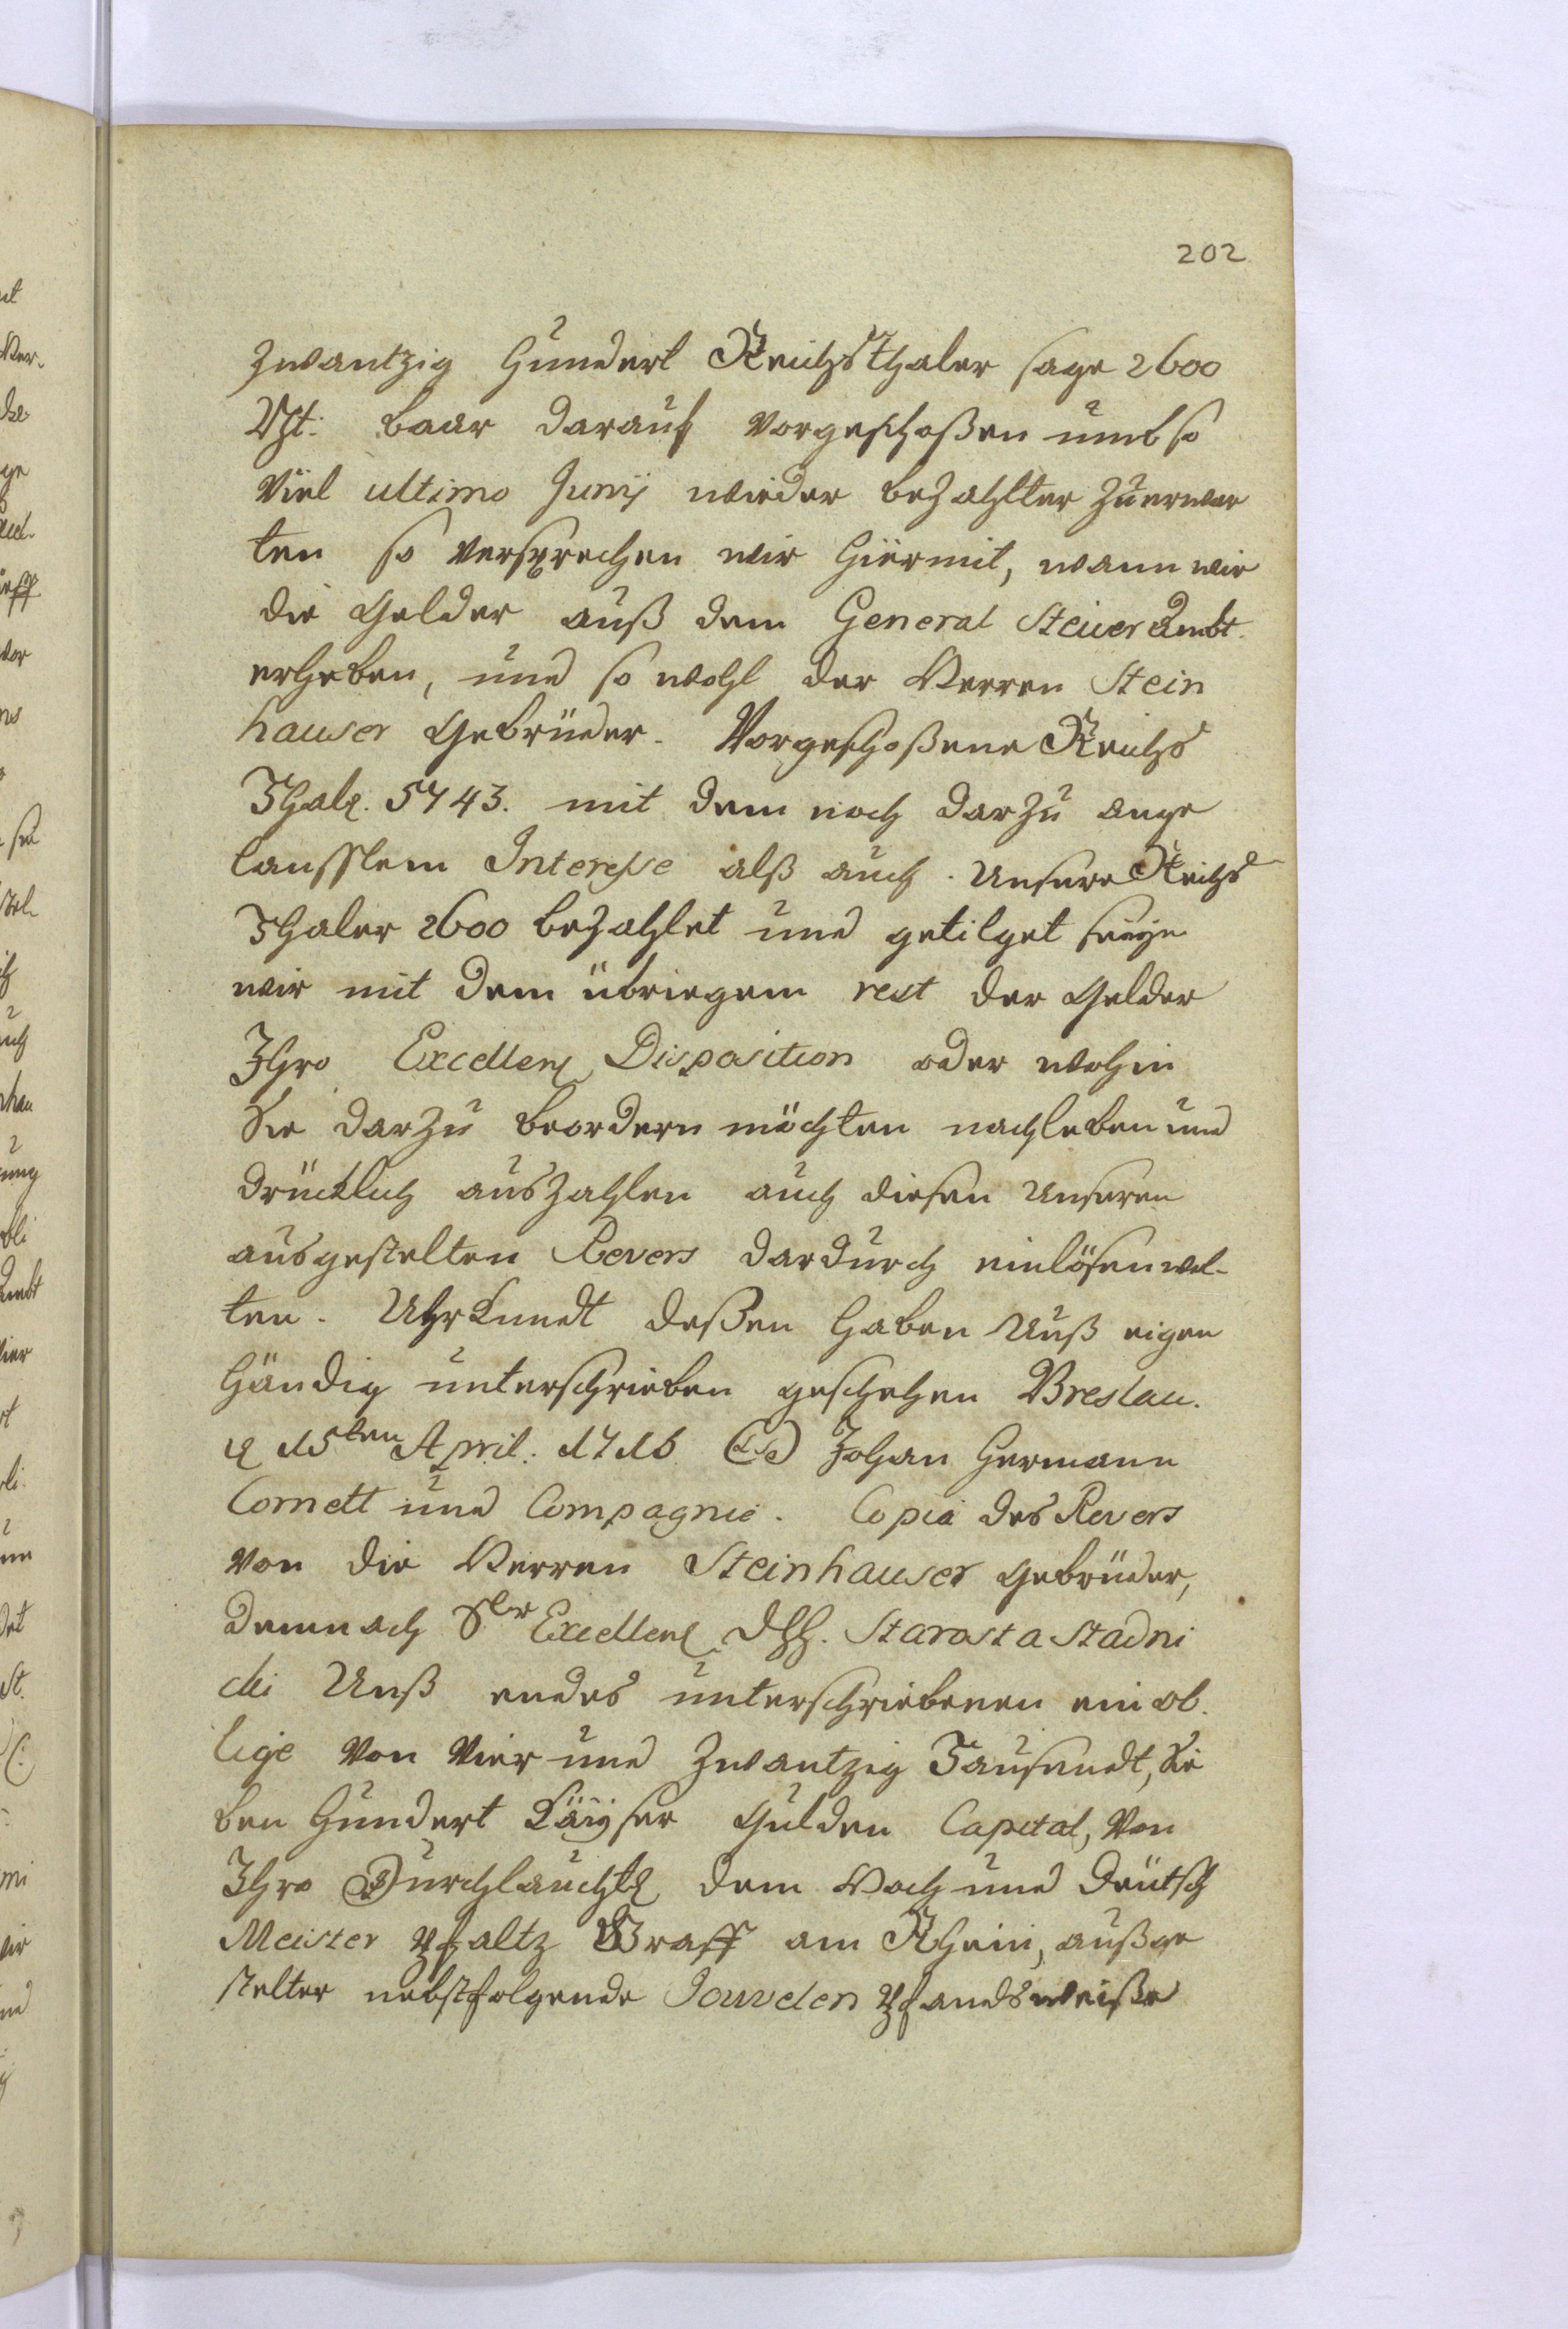 202
zwantzig hundert Reichsthaler sage 2600
Rht: baar darauf vorgeschoßen umb so
viel ultimo Junij wieder bezahlter zuerwar
ten so versprechen wir hiermit, wann wir
die Gelder auß dem General Steuer Ambt
erheben, und so wohl der Herren Stein
hauser Gebrüder. Vorgeschoßene Reichs
Thalr. 5743. mit dem noch darzu ange
laufflem Interesse alß auch. Unsere Reichs
Thaler 2600 bezahlet und getilget seÿn
wir mit dem übriegem rest der Gelder
Ihro Excellenz Disposition oder wohin
Sie darzu beordern möchten nachleben und
drücklich auszahlen auch diesen Unseren
ausgestelten Revers dardurch einlösen wol-
ten. Uhrkundt deßen haben Unß eigen
händig unterschrieben geschehen Breslau.
d 15ten April: 1716 (LS) Johan Hermann
Cornett und Compagnie. Copia des Revers
von die Herren Steinhauser Gebrüder,
demnach Sr Excellenz Starosta Stadni
cki Unß endes unterschriebenen ein ob
lige von vier und zwantzig Tausendt, Sie
ben hundert Käyser Gulden Capital, von
Ihro Durchlaucht dem Hoch und Deütsch
Meister Pfaltz Graff am Rhein, außge
stelter nebst folgende Jouvelen Pfandsweiße